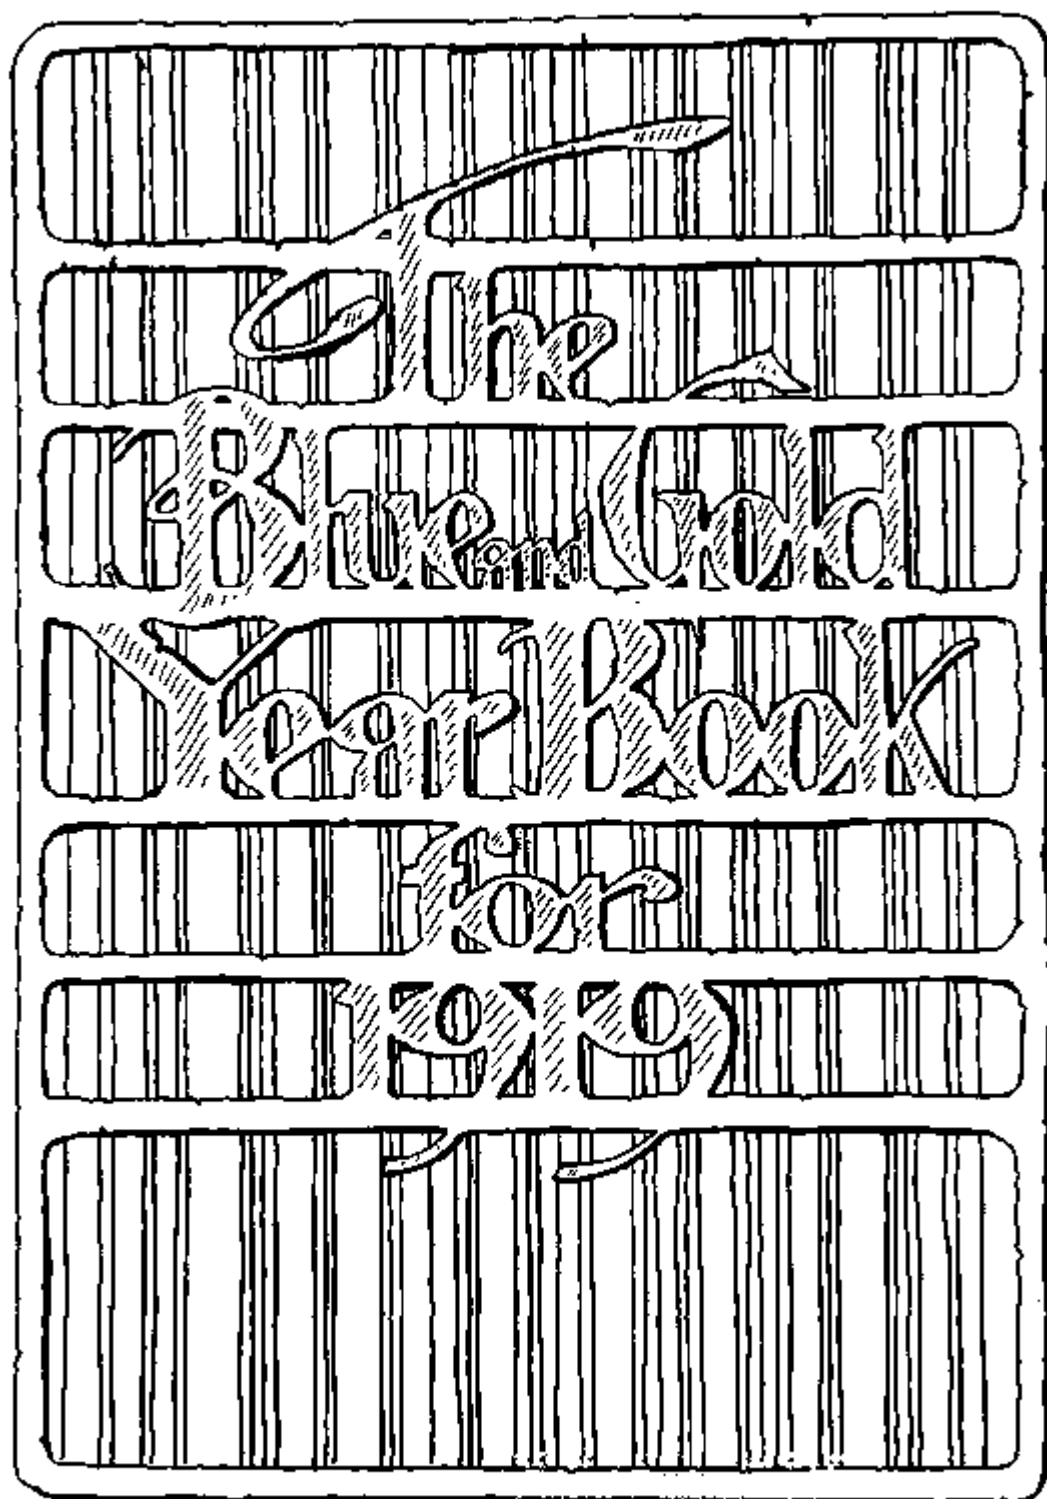 The
Blue and Gold
Year Book
for
1919